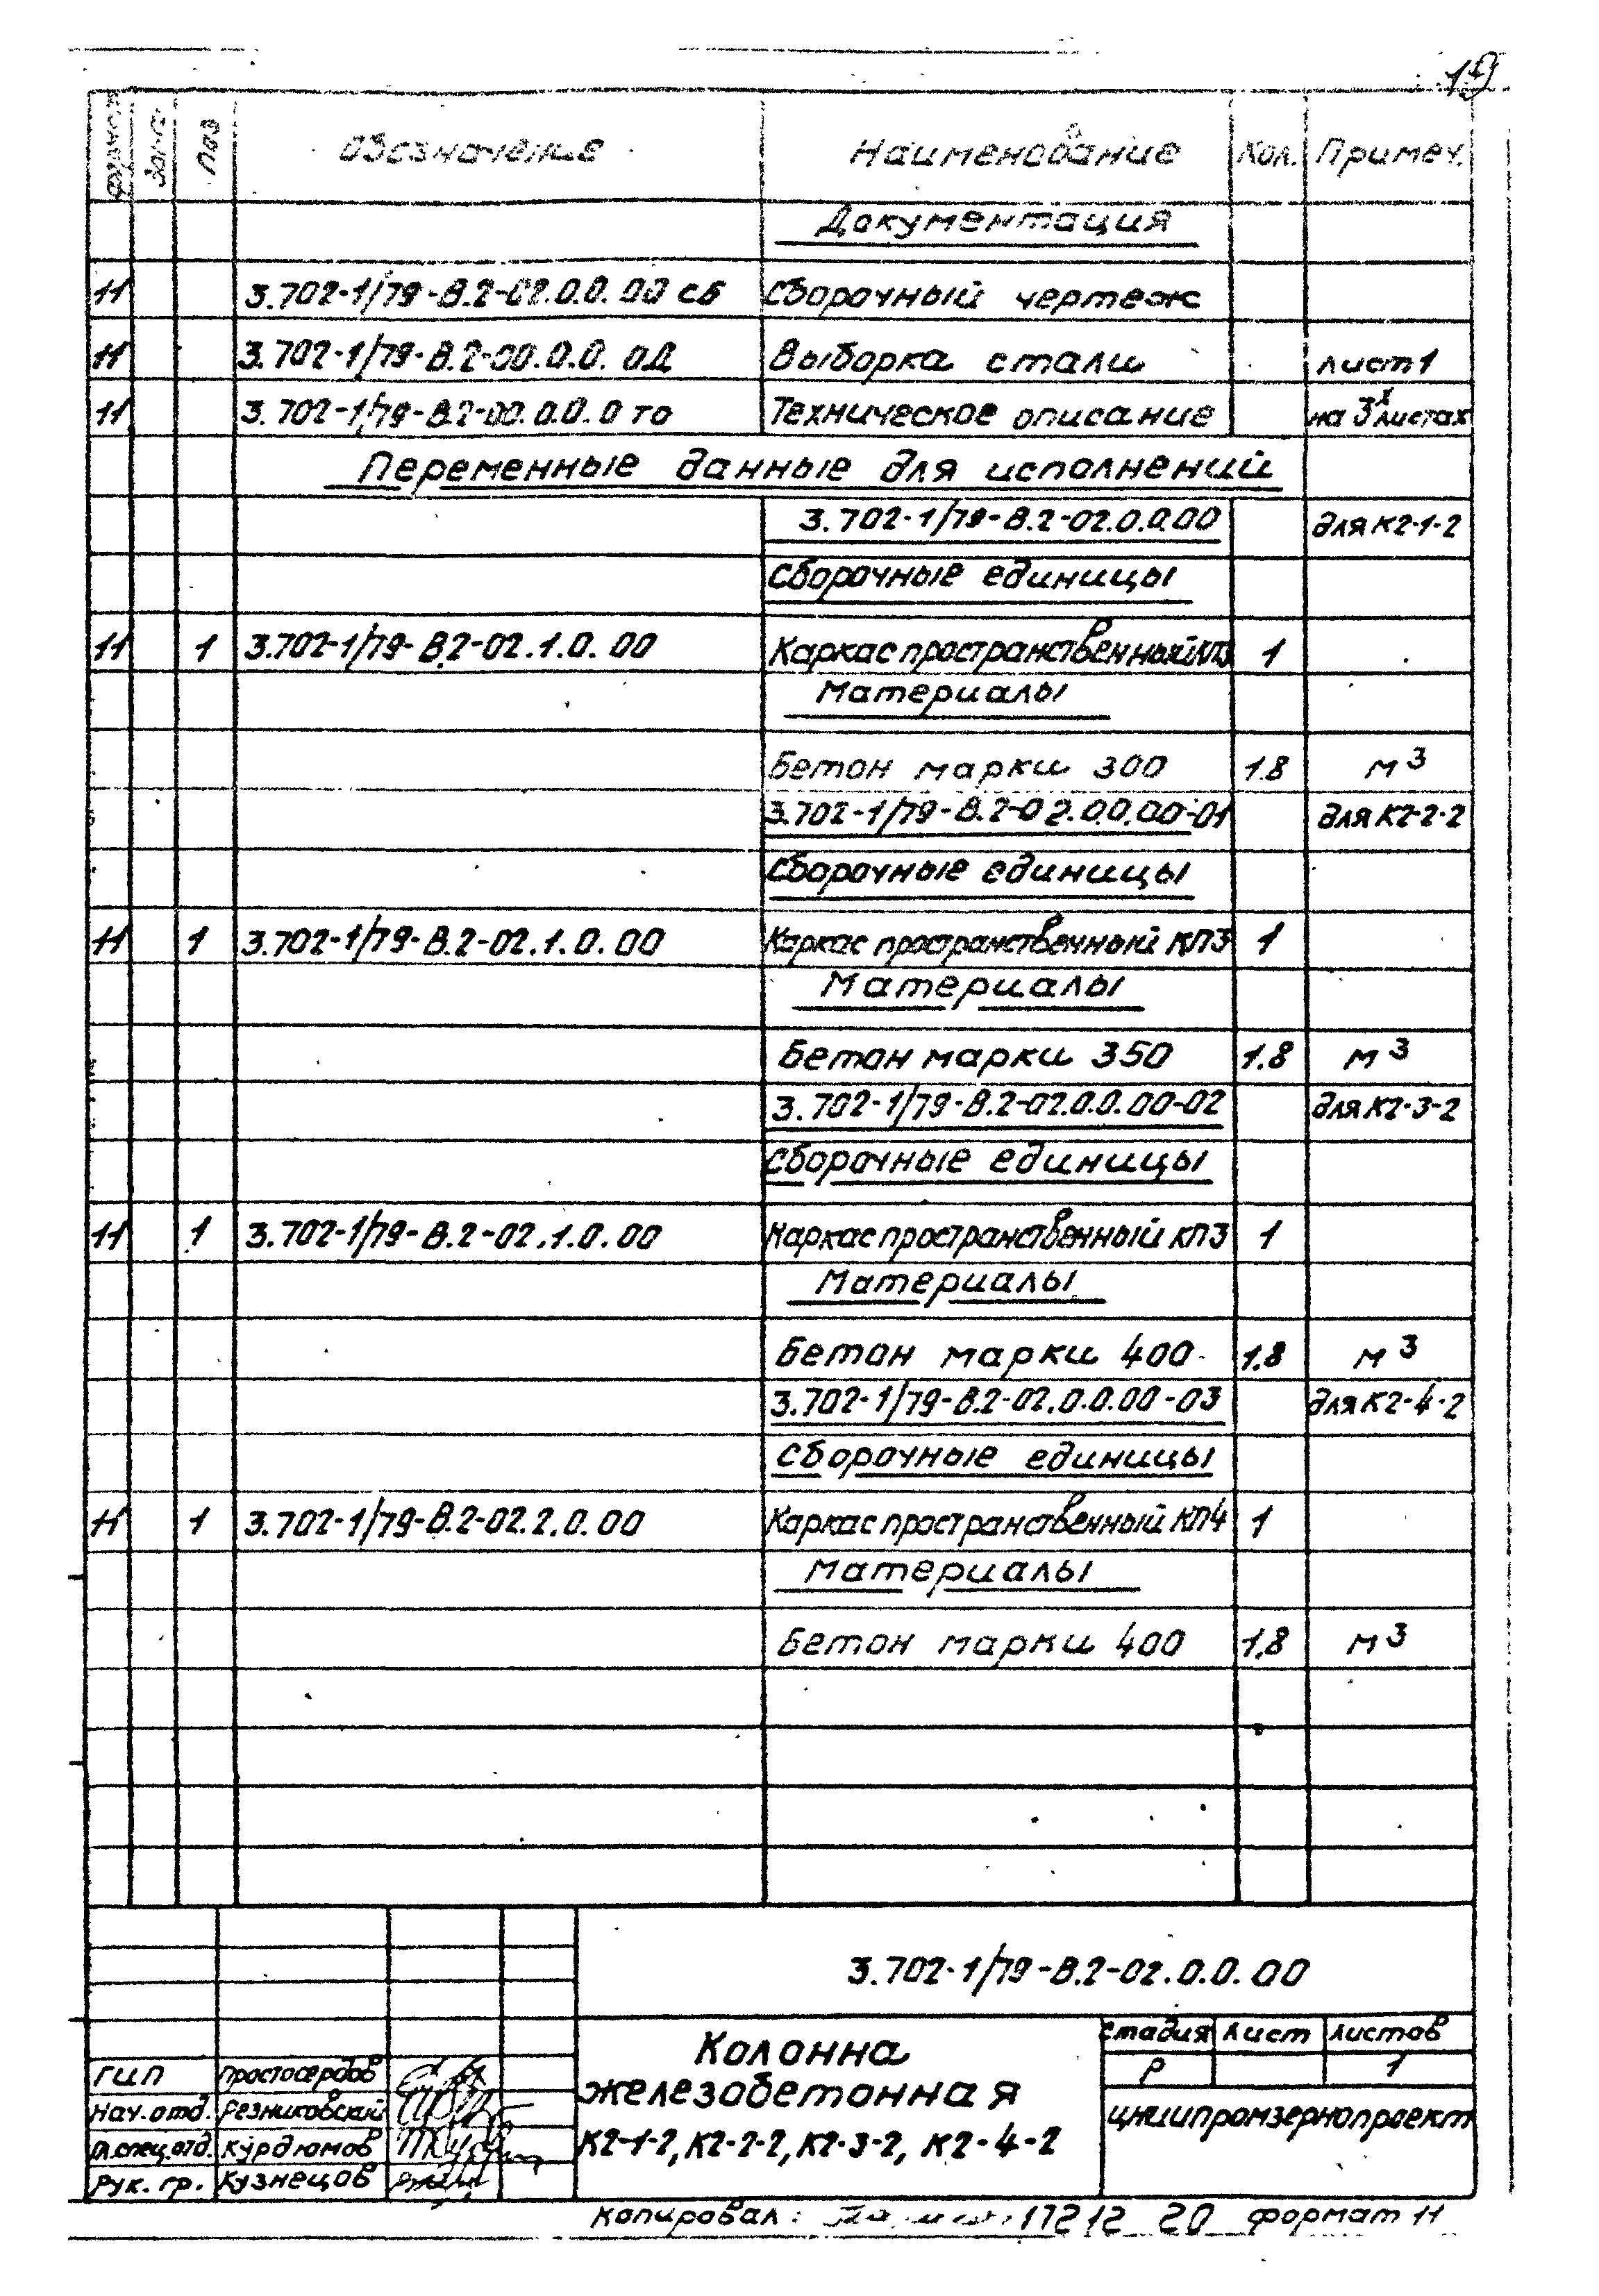 19
Формат Зона Поз Обозначение Наименование Кол. Примеч.
Документация
11 3.702-1/79-В.2-02.0.0.00 сб Сборочный чертеж
11 3.702-1/79-В.2-00.0.0.0Д Выборка стали лист 1
11 3.702-1/79-В.2-00.0.0.0 то Техническое описание на 3х листах
Переменные данные для исполнений
3.702-1/79-В.2-02.0.0.00 для К2-1-2
Сборочные единицы
11 1 3.702-1/79-В.2-02.1.0.00 Каркас пространственный КП3 1
Материалы
Бетон марки 300 1.8 м³
3.702-1/79-В.2-02.0.0.00-01 для К2-2-2
Сборочные единицы
11 1 3.702-1/79-В.2-02.1.0.00 Каркас пространственный КП3 1
Материалы
Бетон марки 350 1.8 м³
3.702-1/79-В.2-02.0.0.00-02 для К2-3-2
Сборочные единицы
11 1 3.702-1/79-В.2-02.1.0.00 Каркас пространственный КП3 1
Материалы
Бетон марки 400 1.8 м³
3.702-1/79-В.2-02.0.0.00-03 для К2-4-2
Сборочные единицы
11 1 3.702-1/79-В.2-02.2.0.00 Каркас пространственный КП4 1
Материалы
Бетон марки 400 1,8 м³
3.702-1/79-В.2-02.0.0.00
Колонна
железобетонная
К2-1-2, К2-2-2, К2-3-2, К2-4-2
Стадия Лист Листов
Р 1
ЦНИИпромзернопроект
ГИП Простосердов
Нач. отд. Резниковский
Гл. спец. отд. Курдюмов
Рук. гр. Кузнецов
Копировал: 17212 20 формат 11